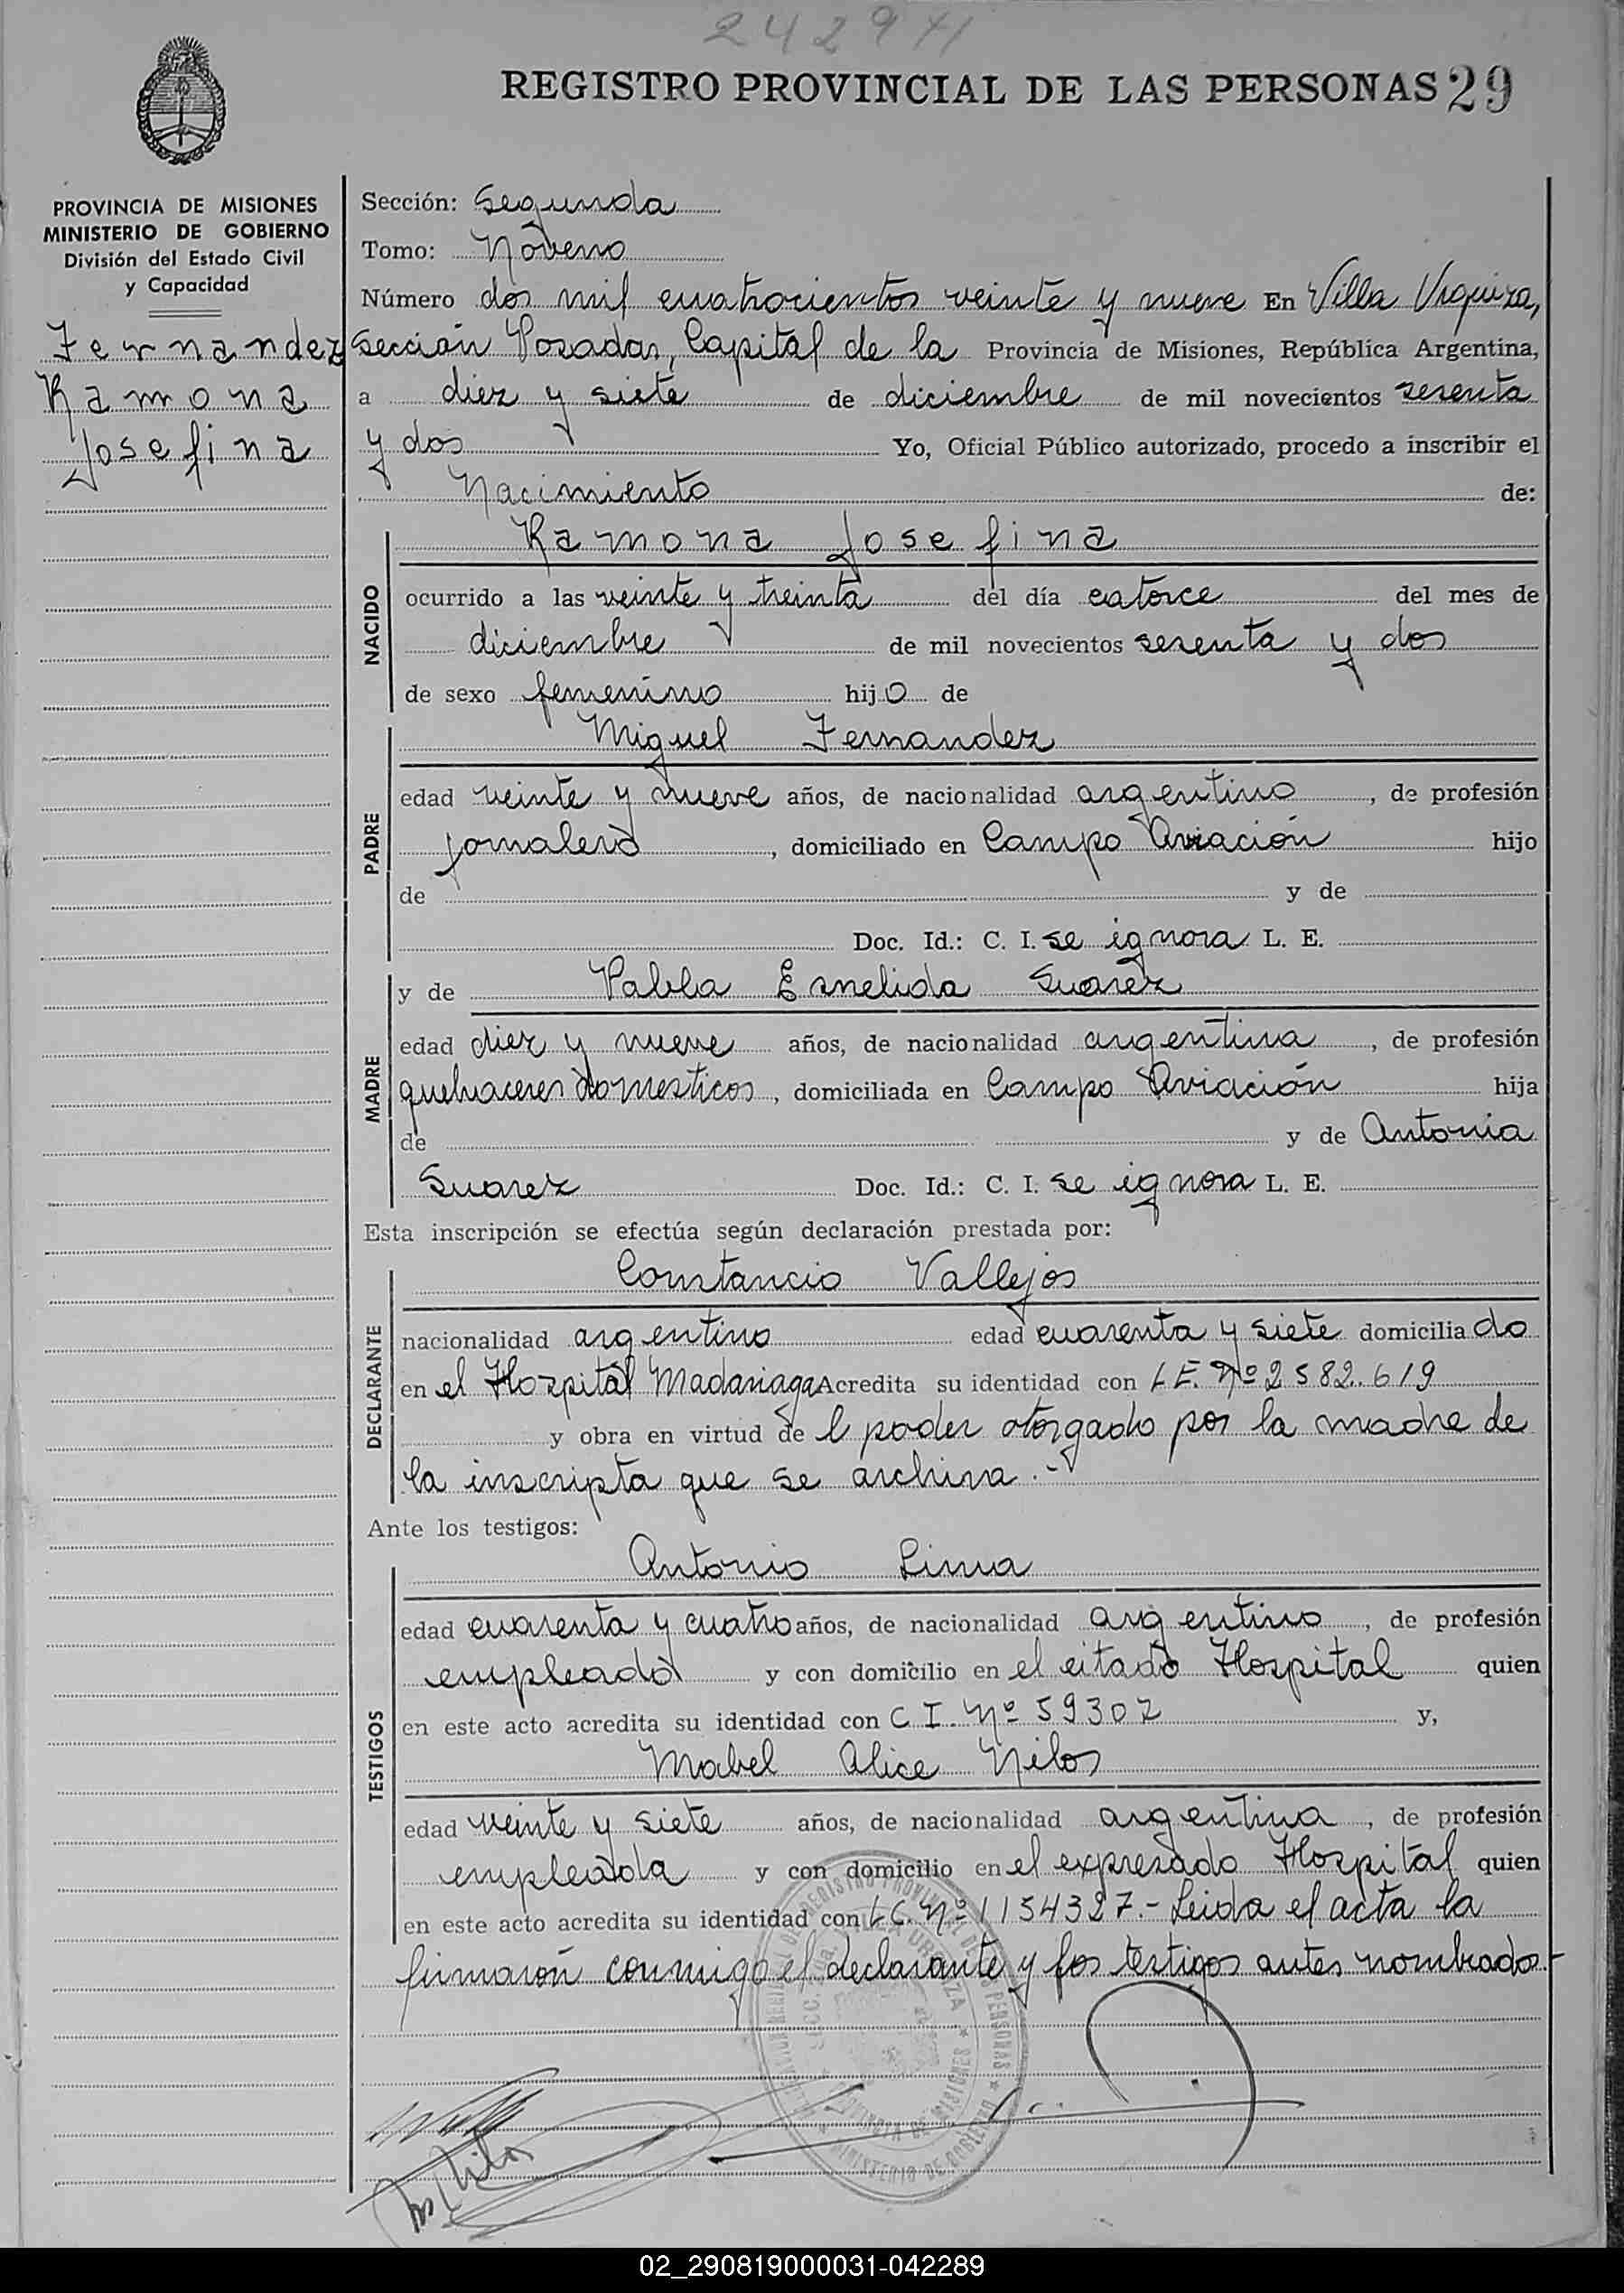 REGISTRO PROVINCIAL DE LAS PERSONAS 29
PROVINCIA DE MISIONES
MINISTERIO DE GOBIERNO
División del Estado Civil
y Capacidad
Fernandez
Ramona
Josefina
Sección: Segunda
Tomo: Noveno
Número dos mil cuatrocientos veinte y nueve En Villa Urquiza,
sección Posadas, Capital de la Provincia de Misiones, República Argentina,
a diez y siete de diciembre de mil novecientos sesenta
y dos Yo, Oficial Público autorizado, procedo a inscribir el
Nacimiento de:
NACIDO
Ramona Josefina
ocurrido a las veinte y treinta del día catorce del mes de
diciembre de mil novecientos sesenta y dos
de sexo femenino hijo de
PADRE
Miguel Fernandez
edad veinte y nueve años, de nacionalidad argentino, de profesión
jornalero, domiciliado en Campo Aviación hijo
de y de
Doc. Id.: C. I. se ignora L. E.
MADRE
y de Pabla Esnelida Suarez
edad diez y nueve años, de nacionalidad argentina, de profesión
quehaceres domesticos, domiciliada en Campo Aviación hija
de y de Antonia
Suarez Doc. Id.: C. I. se ignora L. E.
Esta inscripción se efectúa según declaración prestada por:
DECLARANTE
Constancio Vallejos
nacionalidad argentino edad cuarenta y siete domiciliado
en el Hospital Madariaga Acredita su identidad con L E. Nº 2582.619
y obra en virtud del poder otorgado por la madre de
la inscripta que se archiva.-
Ante los testigos:
TESTIGOS
Antonio Lima
edad cuarenta y cuatro años, de nacionalidad argentino, de profesión
empleado y con domicilio en el citado Hospital quien
en este acto acredita su identidad con C I. Nº 59307 y,
Mabel Alice Nilos
edad veinte y siete años, de nacionalidad argentina, de profesión
empleada y con domicilio en el expresado Hospital quien
en este acto acredita su identidad con L C. Nº 1154327.- Leida el acta la
firmaron conmigo el declarante y los testigos antes nombrados.-
02_290819000031-042289